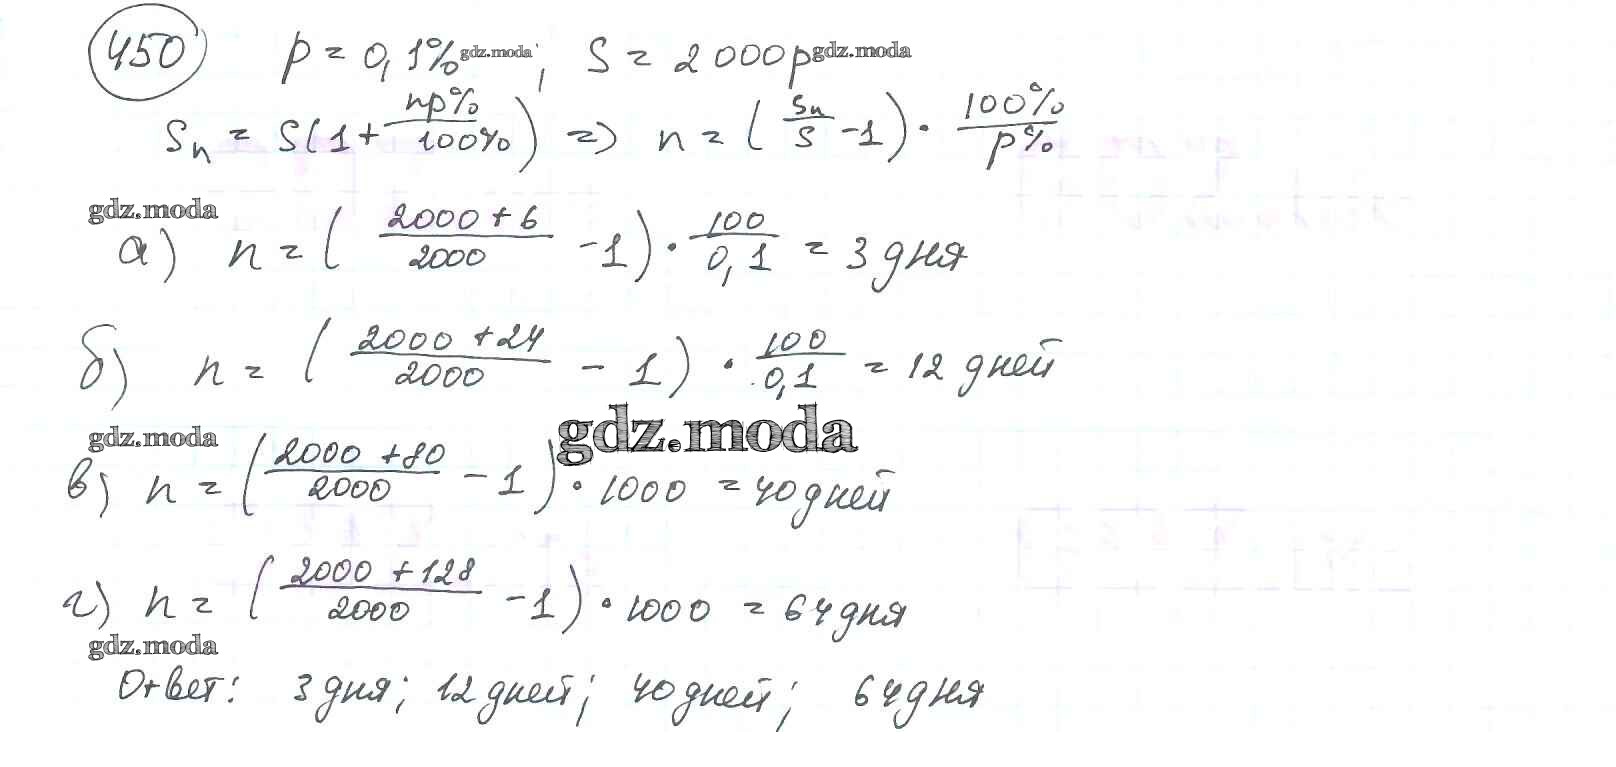 450 p = 0,1% gdz.moda ; S = 2000р gdz.moda
Sn = S(1 + np%/100%) => n = (Sn/S - 1) · 100%/p%
gdz.moda
а) n = (2000 + 6/2000 - 1) · 100/0,1 = 3 дня
б) n = (2000 + 24/2000 - 1) · 100/0,1 = 12 дней
gdz.moda gdz.moda
в) n = (2000 + 80/2000 - 1) · 1000 = 40 дней
г) n = (2000 + 128/2000 - 1) · 1000 = 64 дня
gdz.moda
Ответ: 3 дня; 12 дней; 40 дней; 64 дня